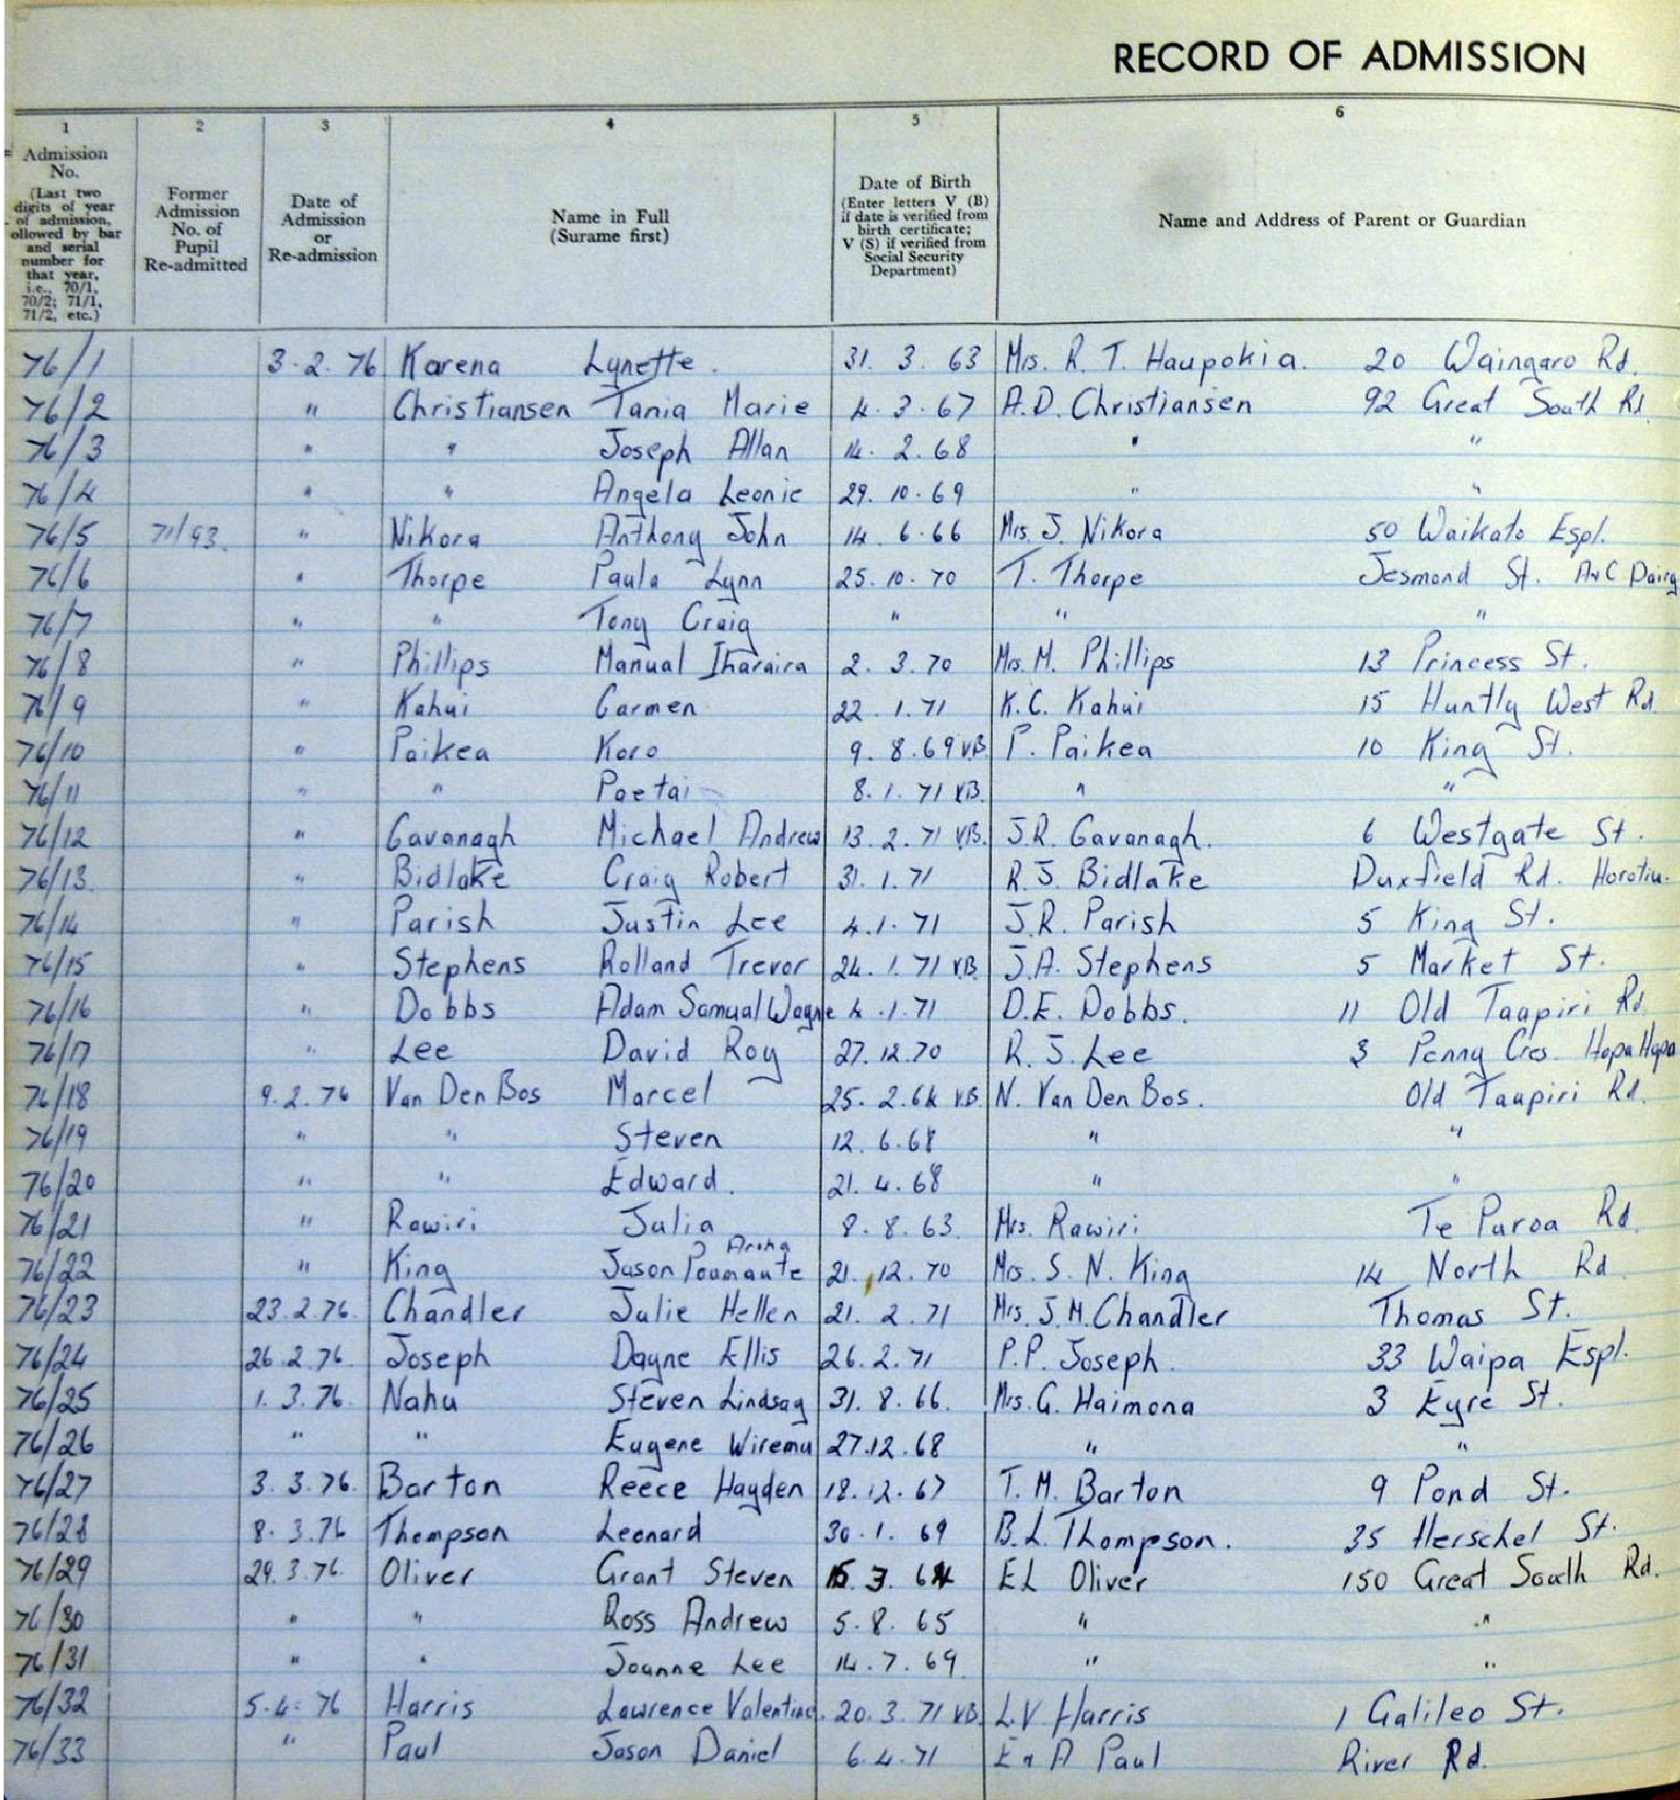 RECORD OF ADMISSION
1 2 3 4 5 6
Admission No. (Last two digits of year of admission, ollowed by bar and serial number for that year, i.e., 70/1, 70/2; 71/1, 71/2, etc.)
Former Admission No. of Pupil Re-admitted
Date of Admission or Re-admission
Name in Full (Surame first)
Date of Birth (Enter letters V (B) if date is verified from birth certificate; V (S) if verified from Social Security Department)
Name and Address of Parent or Guardian
76/1 3.2.76 Karena Lynette. 31. 3. 63 Mrs. R. T. Haupokia. 20 Waingaro Rd.
76/2 " Christiansen Tania Marie 4. 3. 67 A.D. Christiansen 92 Great South Rd
76/3 " " Joseph Allan 14. 2. 68 " "
76/4 " " Angela Leonie 29. 10. 69 " "
76/5 71/93. " Nikora Anthony John 14. 6. 66 Mrs. J. Nikora 50 Waikato Espl.
76/6 " Thorpe Paula Lynn 25. 10. 70 T. Thorpe Jesmond St. A&C Dairy
76/7 " " Tony Craig " " "
76/8 " Phillips Manual Iharaira 2. 3. 70 Mrs. M. Phillips 13 Princess St.
76/9 " Kahui Carmen 22. 1. 71 K.C. Kahui 15 Huntly West Rd.
76/10 " Paikea Koro 9. 8. 69 V.B. P. Paikea 10 King St.
76/11 " " Poetai 8. 1. 71 V.B. " "
76/12 " Gavanagh Michael Andrew 13. 2. 71 V.B. J.R. Gavanagh. 6 Westgate St.
76/13. " Bidlake Craig Robert 31. 1. 71 R.J. Bidlake Duxfield Rd. Horotiu.
76/14 " Parish Justin Lee 4. 1. 71 J.R. Parish 5 King St.
76/15 " Stephens Rolland Trevor 24. 1. 71 V.B. J.A. Stephens 5 Market St.
76/16 " Dobbs Adam Samual Wayne 4. 1. 71 D.E. Dobbs. 11 Old Taapiri Rd.
76/17 " Lee David Roy 27. 12. 70 R. J. Lee 3 Penny Cres. Hopu Hopu
76/18 9.2.76 Van Den Bos Marcel 25. 2. 64 V.B. N. Van Den Bos. Old Taapiri Rd.
76/19 " " Steven 12. 6. 68 " "
76/20 " " Edward. 21. 4. 68 " "
76/21 " Rawiri Julia 8. 8. 63 Mrs. Rawiri Te Paroa Rd.
Aroha
76/22 " King Jason 21. 12. 70 Mrs. S. N. King 14 North Rd
76/23 23.2.76. Chandler Julie Hellen 21. 2. 71 Mrs. J.M. Chandler Thomas St.
76/24 26.2.76. Joseph Dayne Ellis 26. 2. 71 P.P. Joseph. 33 Waipa Espl.
76/25 1. 3. 76. Nahu Steven Lindsay 31. 8. 66. Mrs. G. Haimona 3 Eyre St.
76/26 " " Eugene Wiremu 27.12. 68 " "
76/27 3. 3. 76. Barton Reece Hayden 18. 12. 67 T. M. Barton 9 Pond St.
76/28 8. 3. 76 Thompson Leonard 30. 1. 69 B.L. Thompson. 35 Herschel St.
76/29 29. 3. 76. Oliver Grant Steven 15. 3. 64 E L Oliver 150 Great South Rd.
76/30 " " Ross Andrew 5. 8. 65 " "
76/31 " " Joanne Lee 14. 7. 69. " "
76/32 5. 4. 76 Harris Lawrence Valentine. 20. 3. 71 V.B. L.V Harris 1 Galileo St.
76/33 " Paul Jason Daniel 6. 4. 71 E & A Paul River Rd.